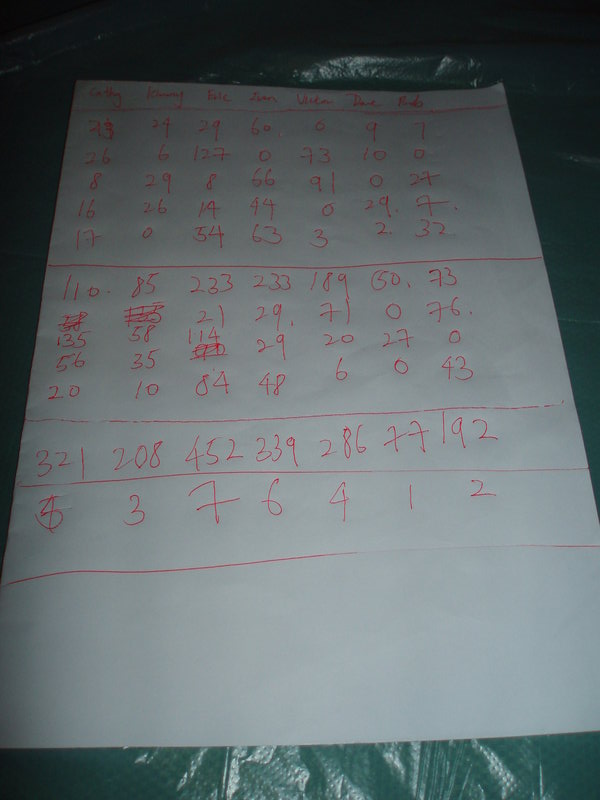 Cathy Kenny Eric Ivan Victor Dave Bob
43 24 29 60 0 9 7
26 6 127 0 73 10 0
8 29 8 66 91 0 27
16 26 14 44 0 29. 7.
17 0 54 63 3 2 32
110. 85 233 233 189 50. 73
21 29. 71 0 76.
135 58 114 29 20 27 0
56 35 6 0 43
20 10 84 48
321 208 452 339 286 77 192
5 3 7 6 4 1 2